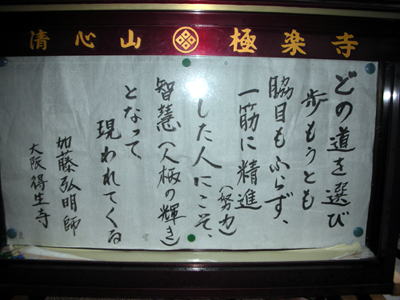 清心山 極楽寺
どの道を選び
歩もうとも
脇目もふらず、
一筋に精進(努力)
した人にこそ、
智慧(人柄の輝き)
となって
現われてくる
加藤弘明師
大阪得生寺